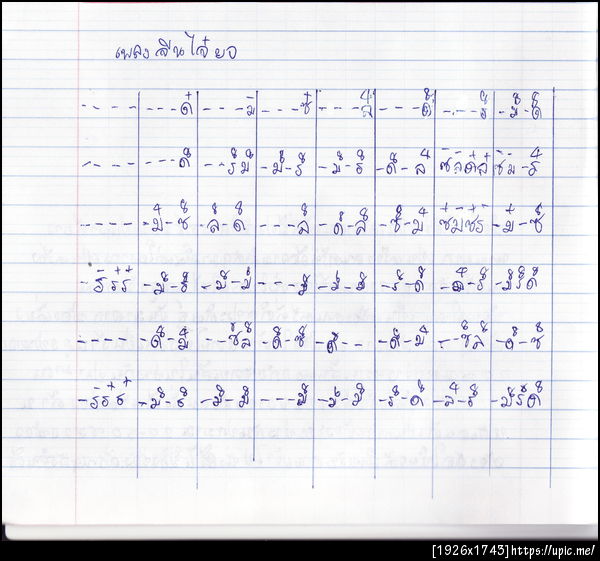 เพลง จีนไจ๋ยอ
- - - - | - - - ด | - - - ม | - - - ซ | - - - ล | - - - ด | - - - ร | - ม - ด
- - - - | - - - ด | - - ร ม | - ม - ร | - ม - ร | - ด - ล | ซ ล ด ล | ซ ม - ร
- - - - | - ม - ซ | - ล - ด | - - - ล | - ด - ล | - ซ - ม | ซ ม ซ ร | - ม - ซ
- ร ร ร | - ม - ร | - ม - ม | - - - ม | - ม - ม | - ร - ด | - ล - ร | - ม ร ด
- - - - | - ด - ม | - - ซ ล | - ด - ซ | - ด - - | - ด - ม | - - ซ ล | - ด - ซ
- ร ร ร | - ม - ร | - ม - ม | - - - ม | - ม - ม | - ร - ด | - ล - ร | - ม ร ด
[1926x1743]https://upic.me/